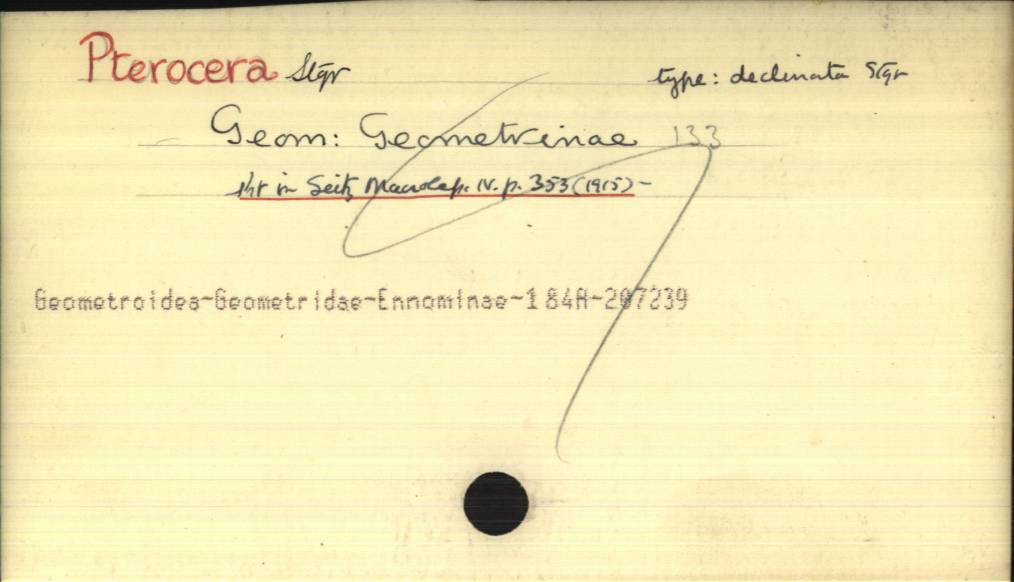 Pterocera Stgr type: declinata Stgr
Geom: Geometrinae 133
in Seitz Macrolep. IV. p. 353 (1915) -
Geometroidea-Geometridae-Ennominae-184A-207239